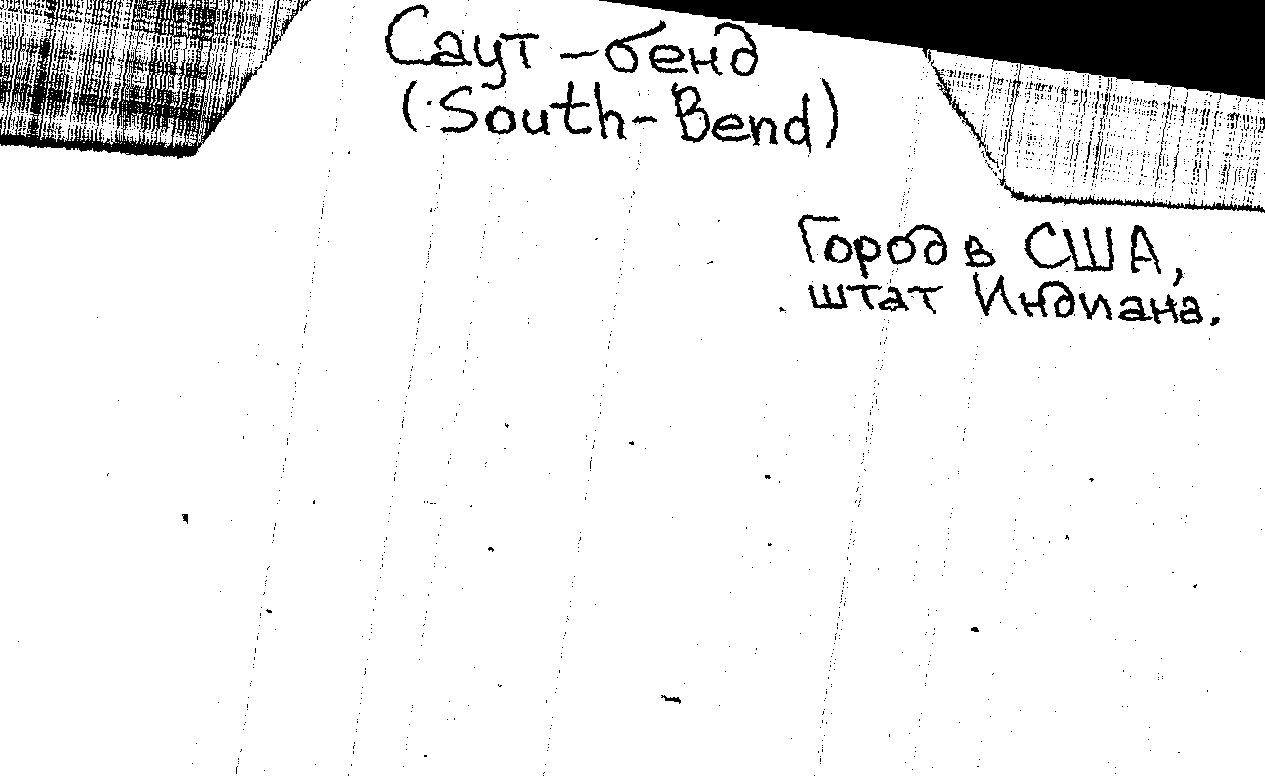 Саут-бенд
(South-Bend)
Город в США,
штат Индиана.